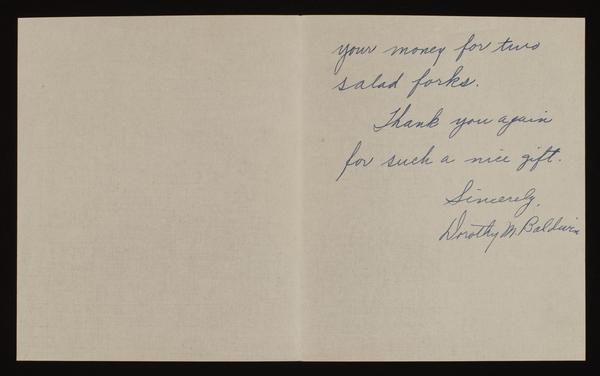 your money for two
salad forks.
Thank you again
for such a nice gift.
Sincerely,
Dorothy M. Baldwin